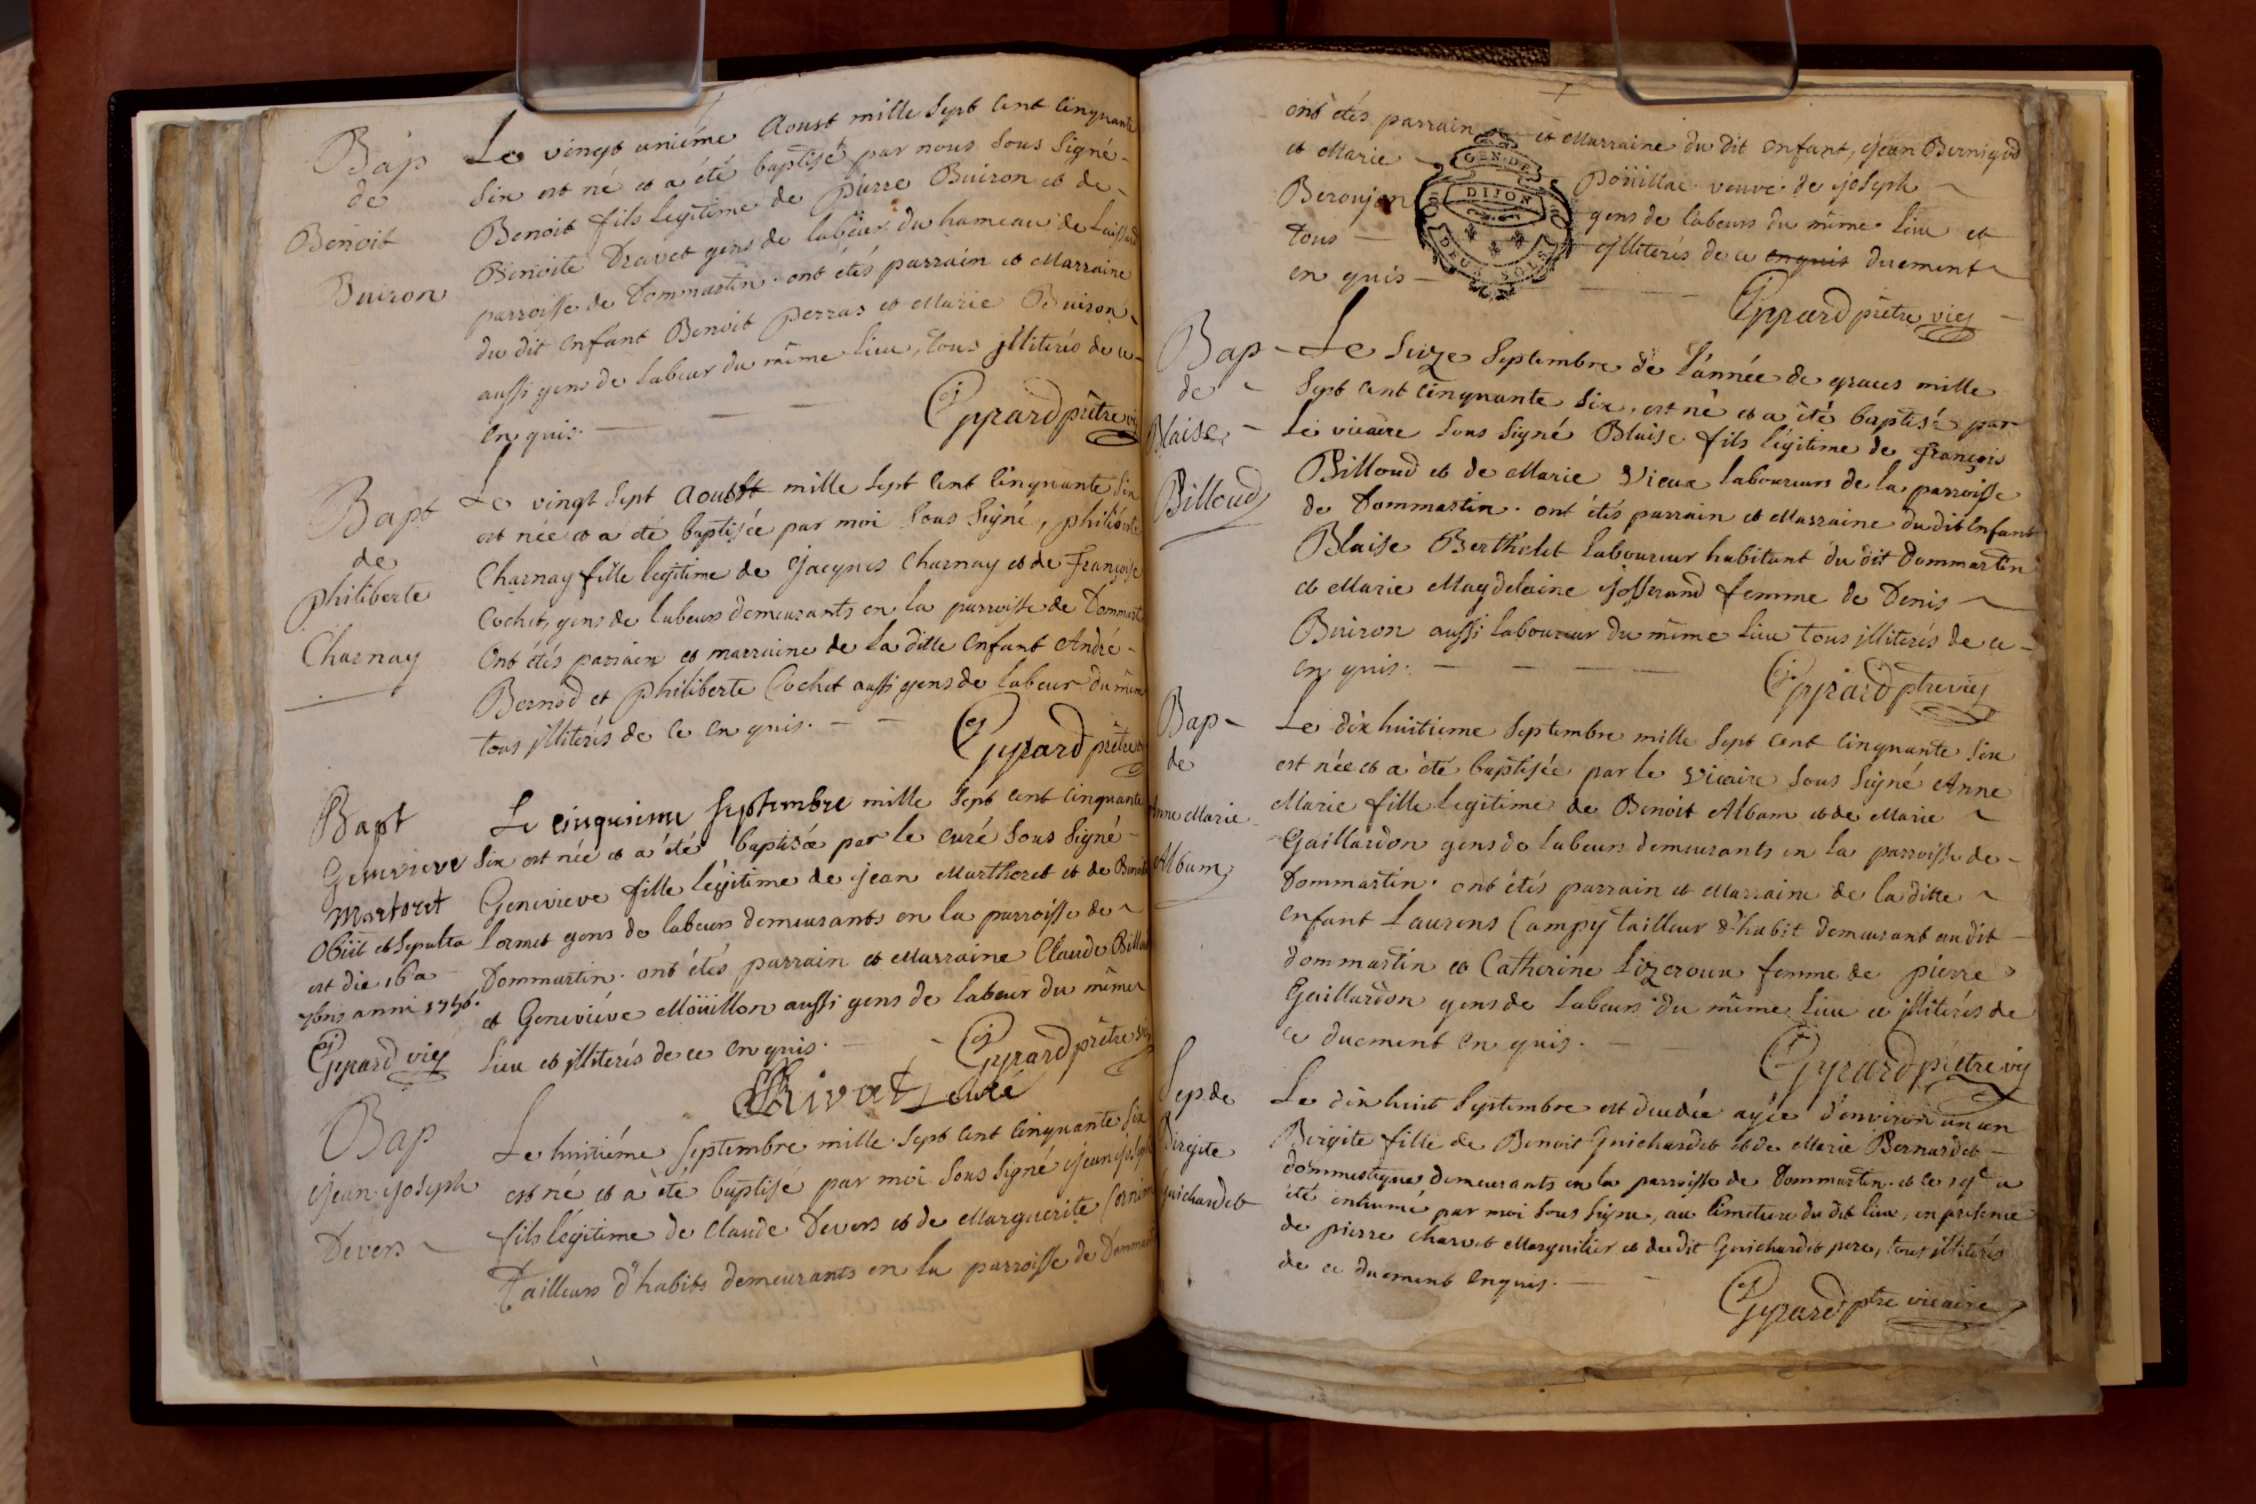 Bap
de
Benoit
Buiron
Le vingt uniéme Aoust mille sept cent cinquante
six est né et a été baptisé par nous sous signé
Benoit fils legitime de pierre Buiron et de
Benoite Dravet gens de labeur du hameau de
parroisse de Dommartin. ont étés parrain et Marraine
du dit enfant Benoit perras et Marie Buiron
aussi gens de labeur du même lieu, tous jlliterés de ce
en quis.
Gyrard prêtre vic
Bapt
de
philiberte
Charnay
Le vingt sept Aoust mille sept cent cinquante six
est née et a été baptisée par moi sous signé, philiberte
Charnay fille legitime de Jacques Charnay et de françoise
Cochet, gens de labeurs demeurants en la parroisse de Dommart
Ont étés parrain et marraine de la ditte enfant André
Bernod et philiberte Cochet aussi gens de labeur du même
tous jlliterés de ce en quis.
Gyrard prêtre
Bapt
Genevieve
Martoret
Obiit et sepulta
est die 16a
7bris anni 1756.
Gyrard vic
Le cinquieme septembre mille sept cent cinquante
six est née et a été baptisée par le curé sous signé
Genevieve fille légitime de Jean Marthoret et de Benoite
Lornet gens de labeurs demeurants en la parroisse de
Dommartin. ont étés parrain et Marraine Claude Billoud
et Geneviéve Moüillon aussi gens de labeur du même
lieu et jlliterés de ce en quis.
Gyrard prêtre vic
Rivat curé
Bap
Jean Joseph
Devers
Le huitiéme septembre mille sept cent cinquante six
est né et a été baptisé par moi sous signé Jean Joseph
fils légitime de Claude Devers et de Marguerite
Tailleurs d'habits demeurants en la parroisse de Dommart
ont étés parrain et Marraine du dit enfant, Jean Bernigod
et Marie Poüillac veuve de Joseph
Beroujon gens de labeurs du même lieu et
tous jlliterés de ce enquis duement
en quis
GEN. DE
DIJON
DEUX SOLS
Gyrard prêtre vic
Bap
de
Blaise
Billoud
Le seize septembre de l'année de graces mille
sept cent cinquante six, est né et a été baptisé par
le vicaire sous signé Blaise fils légitime de françois
Billoud et de Marie Vieux laboureurs de la parroisse
de Dommartin. ont étés parrain et Marraine du dit enfant
Blaise Berthelet laboureur habitant du dit Dommartin
et Marie Magdelaine Josserand femme de Denis
Buiron aussi laboureur du même lieu tous jlliterés de ce
en quis.
Gyrard ptre vic
Bap
de
Anne Marie
Albam
Le dix huitieme septembre mille sept cent cinquante six
est née et a été baptisée par le vicaire sous signé Anne
Marie fille legitime de Benoit Albam et de Marie
Gaillardon gens de labeurs demeurants en la parroisse de
Dommartin. ont étés parrain et Marraine de la ditte
enfant Laurens Campy tailleur d'habit demeurant au dit
dommartin et Catherine Lizeroux femme de pierre
Gaillardon gens de labeurs du même lieu et jlliterés de
ce duement en quis.
Gyrard prêtre vic
Sep. de
Birgite
Guichardet
Le dix huit septembre est decedée agée d'environ un an
Birgite fille de Benoit Guichardet et de Marie Bernardet
dommestiques demeurants en la parroisse de Dommartin. et le 19e a
été enhumé par moi sous signé, au cimetiere du dit lieu, en presence
de pierre Charvet Marguilier et du dit Guichardet pere, tous jlliterés
de ce duement enquis.
Gyrard ptre vicaire